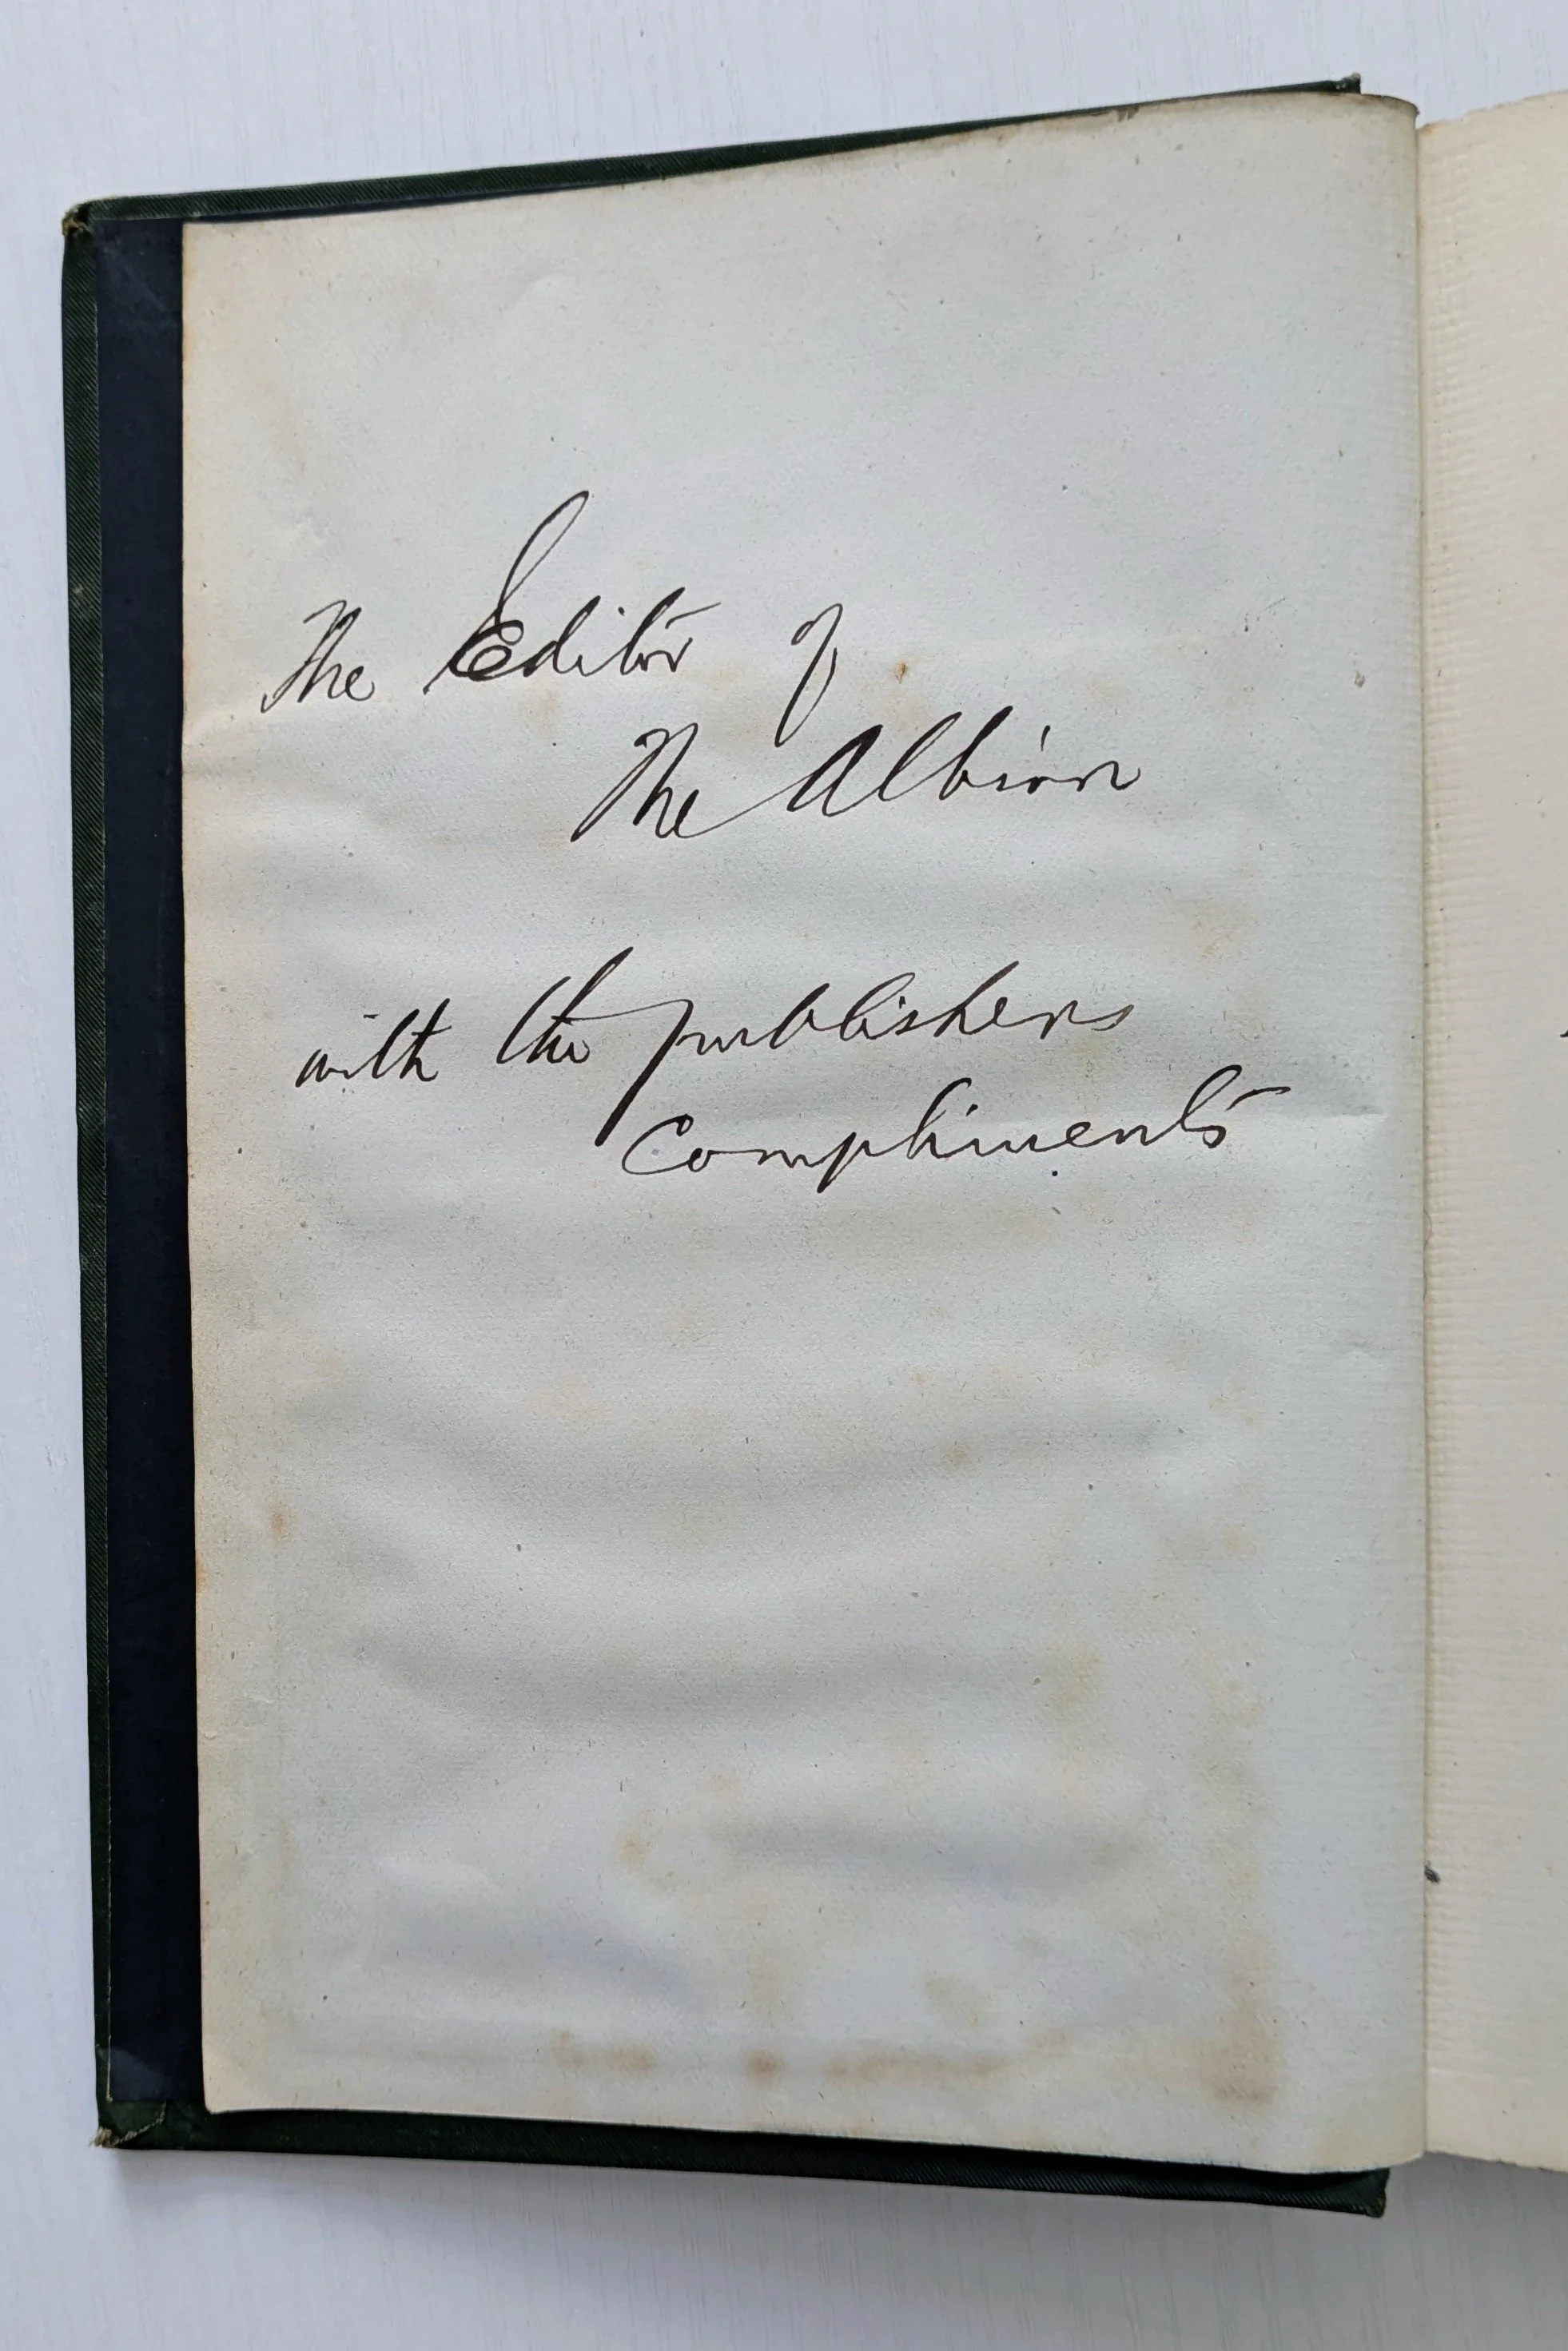 The Editor of
The Albion
with the publishers
Compliments